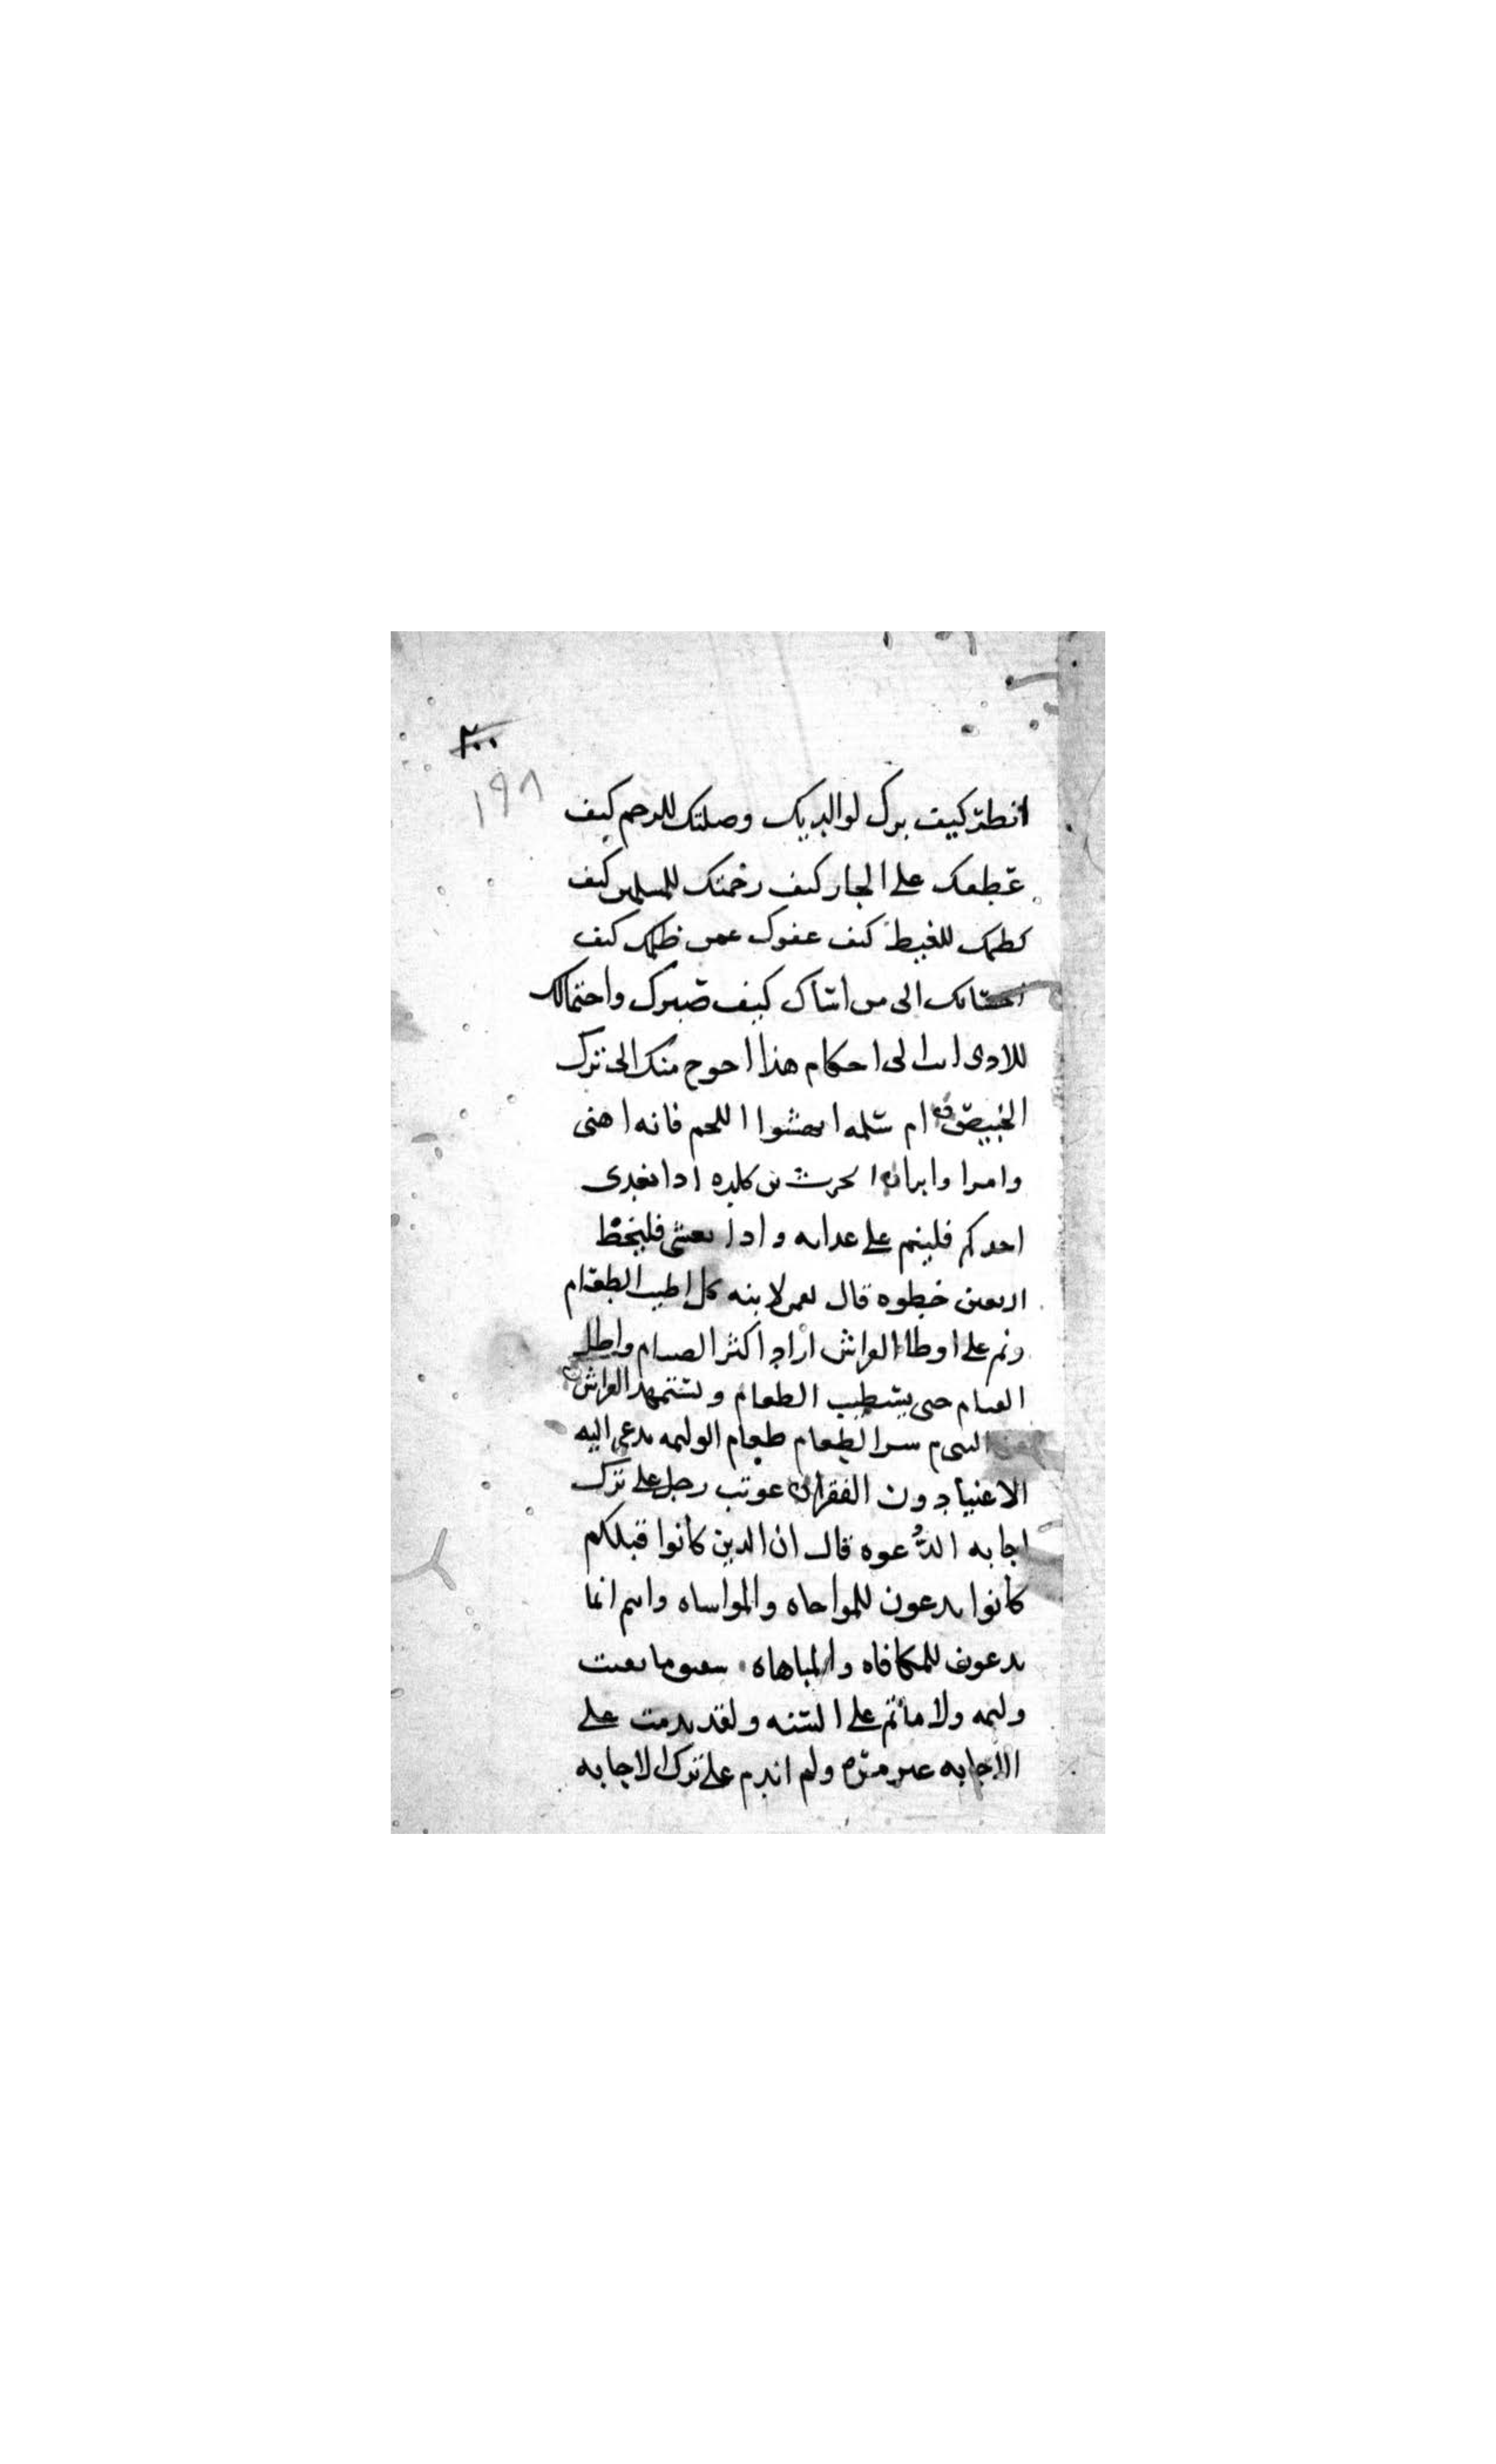 ٢٠٠
١٩٨
انظر كيف برك لوالديك وصلتك للرحم كيف
عطفك على الجار كيف رحمتك للمسلمين كيف
كظمك للغيظ كيف عفوك عمن ظلمك كيف
احسانك الى من اساك كيف صبرك واحتمالك
للاذى انت الى احكام هذا احوج منك الى ترك
الخبيص ام سلمه انهشوا اللحم فانه اهنى
وامرا وابرا الحرث بن كلده اذا تغدى
احدكم فلينم على غدائه واذا تعشى فليخط
اربعين خطوه قال لقمن لابنه كل اطيب الطعام
ونم على اوطا الفراش اراد اكثر الصيام واطل
القيام حتى يستطيب الطعام ويستمهد الفراش
عن النبي م شر الطعام طعام الوليمه يدعى اليه
الاغنيا دون الفقرا عوتب رجل على ترك
اجابه الدعوه قال ان الذين كانوا قبلكم
كانوا يدعون للمواخاه والمواساه وانتم انما
يدعون للمكافاه والمباهاه ما بقيت
وليمه ولا ماتم على السنه ولقد ندمت على
الاجابه غير مره ولم اندم على ترك الاجابه